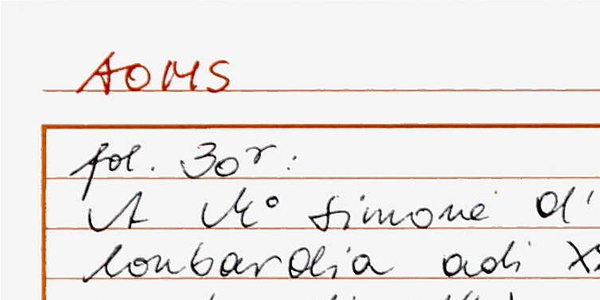 AOMS
fol. 30r:
A M° simone d'
lonbardia adi